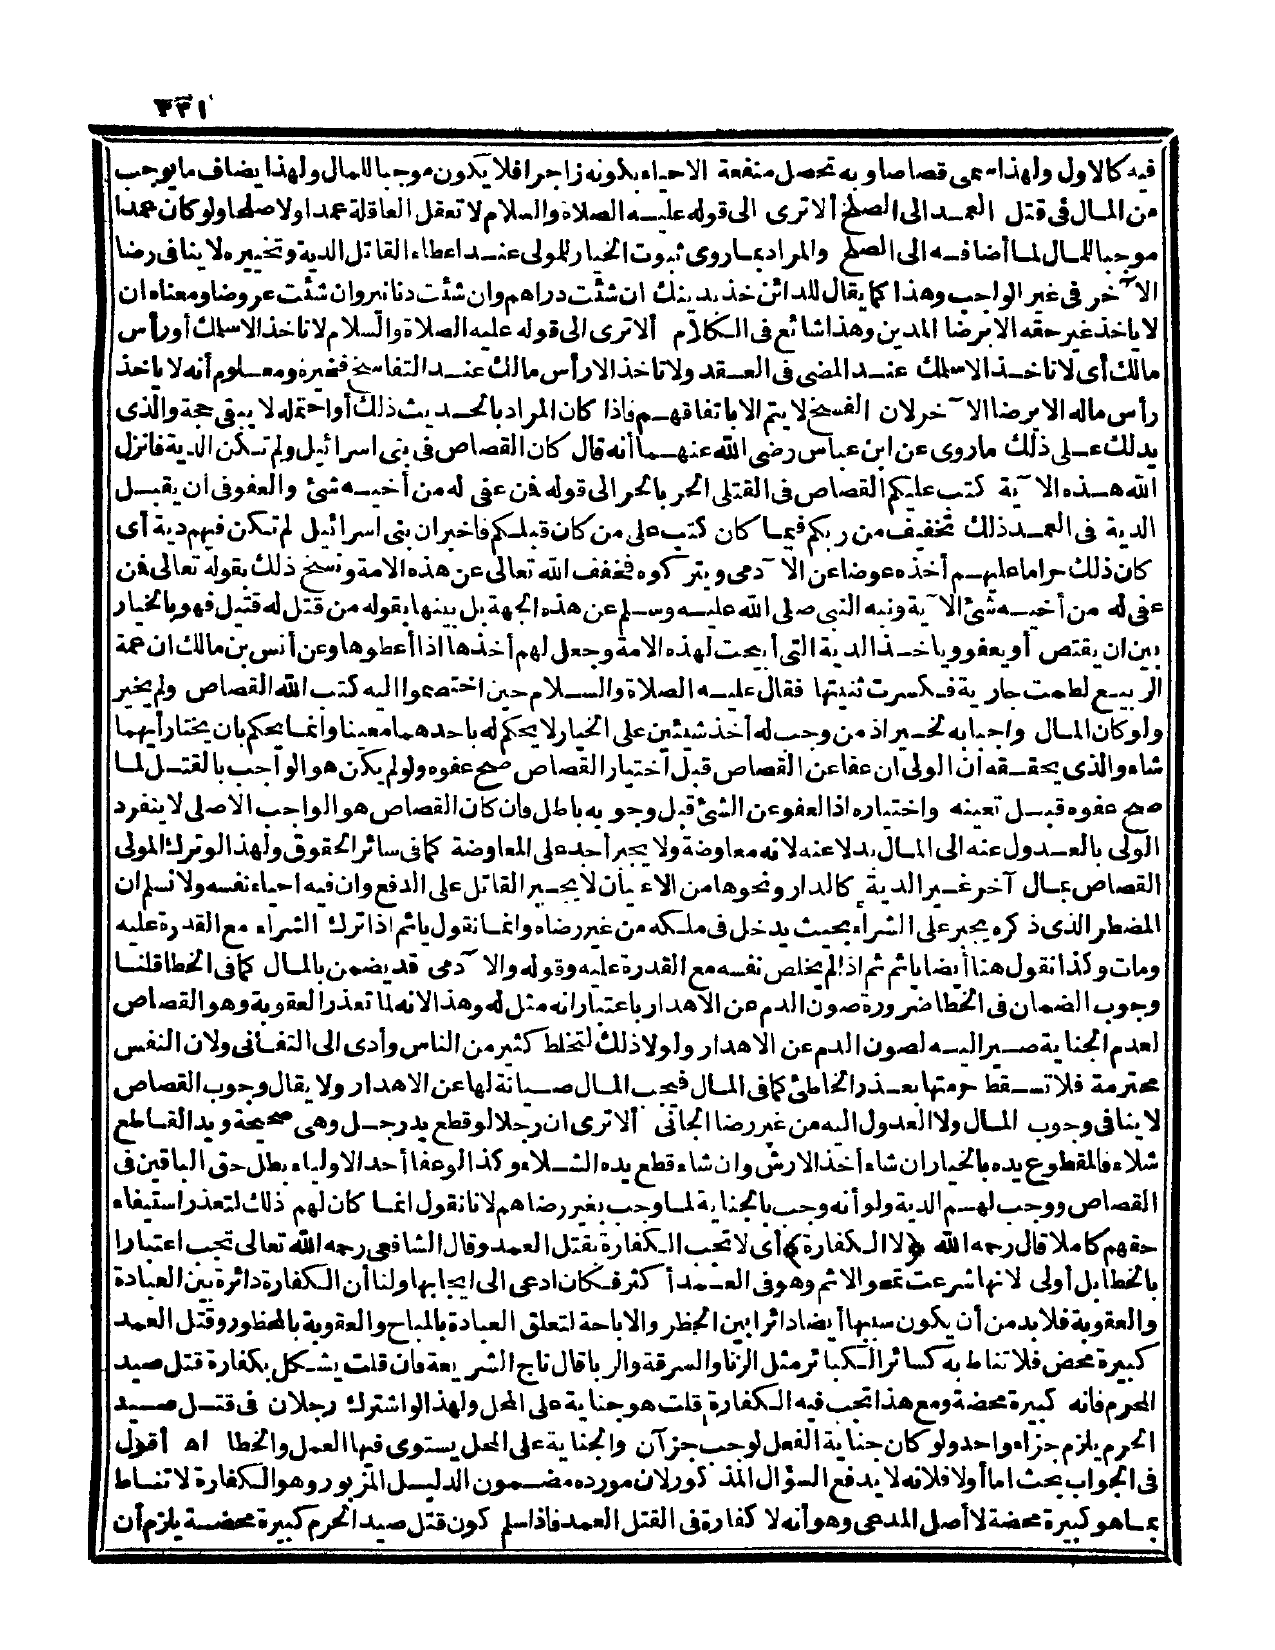 ٣٣١
فيه كالاول ولهذا سمى قصاصا وبه تحصل منفعة الاحياء بكونه زاجرا فلا يكون موجبا للمال ولهذا يضاف ما يوجب
من المال فى قتل العمد الى الصلح ألا ترى الى قوله عليه الصلاة والسلام لا تعقل العاقلة عمدا ولا صلحا ولو كان عمدا
موجبا للمال لما أضافه الى الصلح والمراد بما روى ثبوت الخيار للولى عند اعطاء القاتل الدية وتخييره لا ينافى رضا
الآخر فى غير الواجب وهذا كما يقال للدائن خذ بدينك ان شئت دراهم وان شئت دنانير وان شئت عروضا ومعناه ان
لا ياخذ غير حقه الا برضا المدين وهذا شائع فى الكلام ألا ترى الى قوله عليه الصلاة والسلام لا تاخذ الا سلمك أو رأس
مالك أى لا تاخذ الا سلمك عند المضى فى العقد ولا تاخذ الا رأس مالك عند التفاسخ فخيره ومعلوم أنه لا ياخذ
رأس ماله الا برضا الآخر لان الفسخ لا يتم الا باتفاقهم فاذا كان المراد بالحديث ذلك أو احتمله لا يبقى حجة والذى
يدلك على ذلك ماروى عن ابن عباس رضى الله عنهما أنه قال كان القصاص فى بنى اسرائيل ولم تكن الدية فانزل
الله هذه الآية كتب عليكم القصاص فى القتلى الحر بالحر الى قوله فمن عفى له من أخيه شئ والعفو فى أن يقبل
الدية فى العمد ذلك تخفيف من ربكم فيما كان كتب على من كان قبلكم فاخبر ان بنى اسرائيل لم تكن فيهم دية أى
كان ذلك حراما عليهم أخذه عوضا عن الآدمى ويتركوه فخفف الله تعالى عن هذه الامة ونسخ ذلك بقوله تعالى فمن
عفى له من أخيه شئ الآية ونبه النبى صلى الله عليه وسلم عن هذه الجهة بل بينها بقوله من قتل له قتيل فهو بالخيار
بين ان يقتص أو يعفو وياخذ الدية التى أبيحت لهذه الامة وجعل لهم أخذها اذا أعطوها وعن أنس بن مالك ان عمة
الربيع لطمت جارية فكسرت ثنيتها فقال عليه الصلاة والسلام حين اختصموا اليه كتب الله القصاص ولم يخير
ولو كان المال واجبا به لخير اذ من وجب له أخذ شيئين على الخيار لا يحكم له باحدهما معينا وانما يحكم بان يختار أيهما
شاء والذى يحققه ان الولى ان عفا عن القصاص قبل أختيار القصاص صح عفوه ولو لم يكن هو الواجب بالقتل لما
صح عفوه قبل تعينه واختياره اذ العفو عن الشئ قبل وجوبه باطل وان كان القصاص هو الواجب الاصلى لا ينفرد
الولى بالعدول عنه الى المال بدلا عنه لانه معاوضة ولا يجبر أحد على المعاوضة كما فى سائر الحقوق ولهذا لو ترك المولى
القصاص بمال آخر غير الدية كالدار ونحوها من الاعيان لا يجبر القاتل على الدفع وان فيه احياء نفسه ولا نسلم ان
المضطر الذى ذكره يجبر على الشراء بحيث يدخل فى ملكه من غير رضاه وانما نقول ياثم اذا ترك الشراء مع القدرة عليه
ومات وكذا نقول هنا أيضا ياثم ثم اذا لم يخلص نفسه مع القدرة عليه وقوله والآدمى قد يضمن بالمال كما فى الخطا قلنا
وجوب الضمان فى الخطا ضرورة صون الدم عن الاهدار باعتبار انه مثل له وهذا لانه لما تعذر العقوبة وهو القصاص
لعدم الجناية صير اليه لصون الدم عن الاهدار ولولا ذلك لتخلط كثير من الناس وأدى الى التفانى ولان النفس
محترمة فلا تسقط حرمتها بعذر الخاطئ كما فى المال فيجب المال صيانة لها عن الاهدار ولا يقال وجوب القصاص
لا ينافى وجوب المال ولا العدول اليه من غير رضا الجانى ألا ترى ان رجلا لو قطع يد رجل وهى صحيحة ويد القاطع
شلاء فالمقطوع يده بالخيار ان شاء أخذ الارش وان شاء قطع يده الشلاء وكذا لو عفا أحد الاولياء بطل حق الباقين فى
القصاص ووجب لهم الدية ولو أنه وجب بالجناية لما وجب بغير رضاهم لانا نقول انما كان لهم ذلك لتعذر استيفاء
حقهم كاملا قال رحمه الله ﴿لا الكفارة﴾ أى لا تجب الكفارة بقتل العمد وقال الشافعى رحمه الله تعالى تجب اعتبارا
بالخطا بل أولى لانها شرعت تمحو الاثم وهو فى العمد أكثر فكان ادعى الى ايجابها ولنا أن الكفارة دائرة بين العبادة
والعقوبة فلا بد من أن يكون سببها أيضا دائرا بين الحظر والاباحة لتعلق العبادة بالمباح والعقوبة بالمحظور وقتل العمد
كبيرة محض فلا تناط به كسائر الكبائر مثل الزنا والسرقة والربا قال تاج الشريعة فان قلت يشكل بكفارة قتل صيد
المحرم فانه كبيرة محضة ومع هذا تجب فيه الكفارة قلت هو جناية على المحل ولهذا لو اشترك رجلان فى قتل صيد
الحرم يلزم جزاء واحد ولو كان جناية الفعل لوجب جزآن والجناية على المحل يستوى فيها العمل والخطا اه أقول
فى الجواب بحث اما أولا فلانه لا يدفع السؤال المذكور لان مورده مضمون الدليل المزبور وهو الكفارة لا تناط
بما هو كبيرة محضة لا أصل المدعى وهو أنه لا كفارة فى القتل العمد فاذا سلم كون قتل صيد الحرم كبيرة محضة يلزم أن